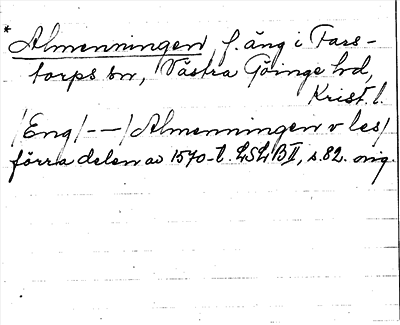 * Almenningen, f. äng i Fars-
torps sn, Västra Göinge hd,
Krist. l.
/Eng/--/Almenningen v les/
förra delen av 1570-t. LSLBII, s. 82. orig.